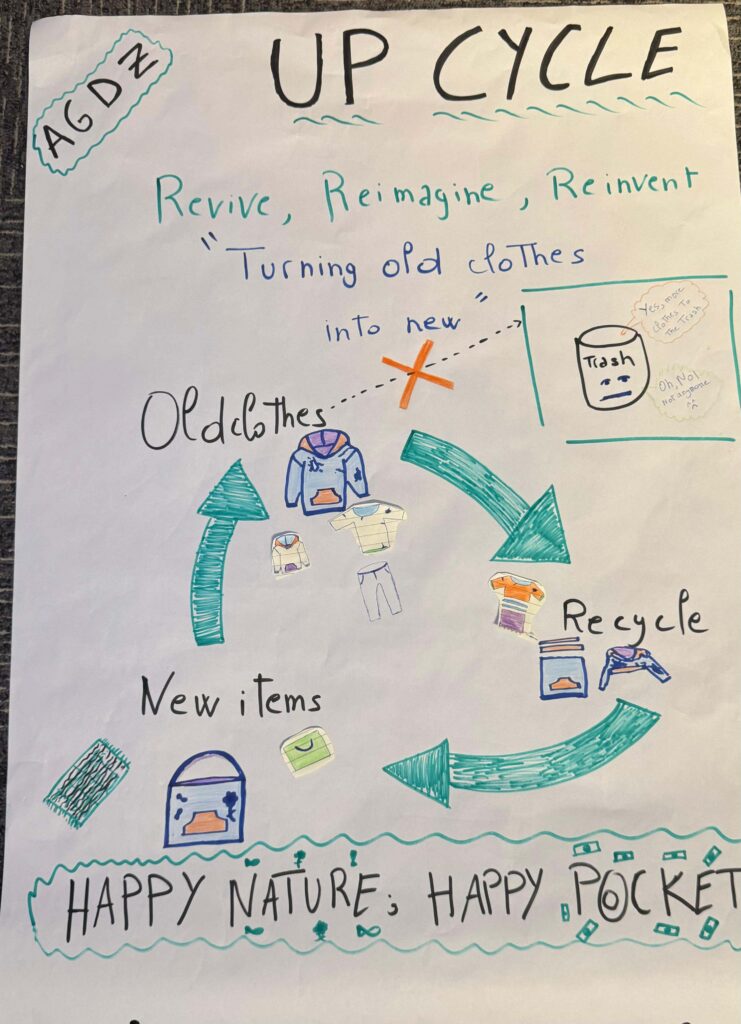 AGDZ
UP CYCLE
Revive, Reimagine, Reinvent
"Turning old clothes
into new"
Yes, more
clothes To
The Trash
Trash
Oh, No!
Not anymore
^^
Old clothes
Recycle
New items
HAPPY NATURE; HAPPY POCKET